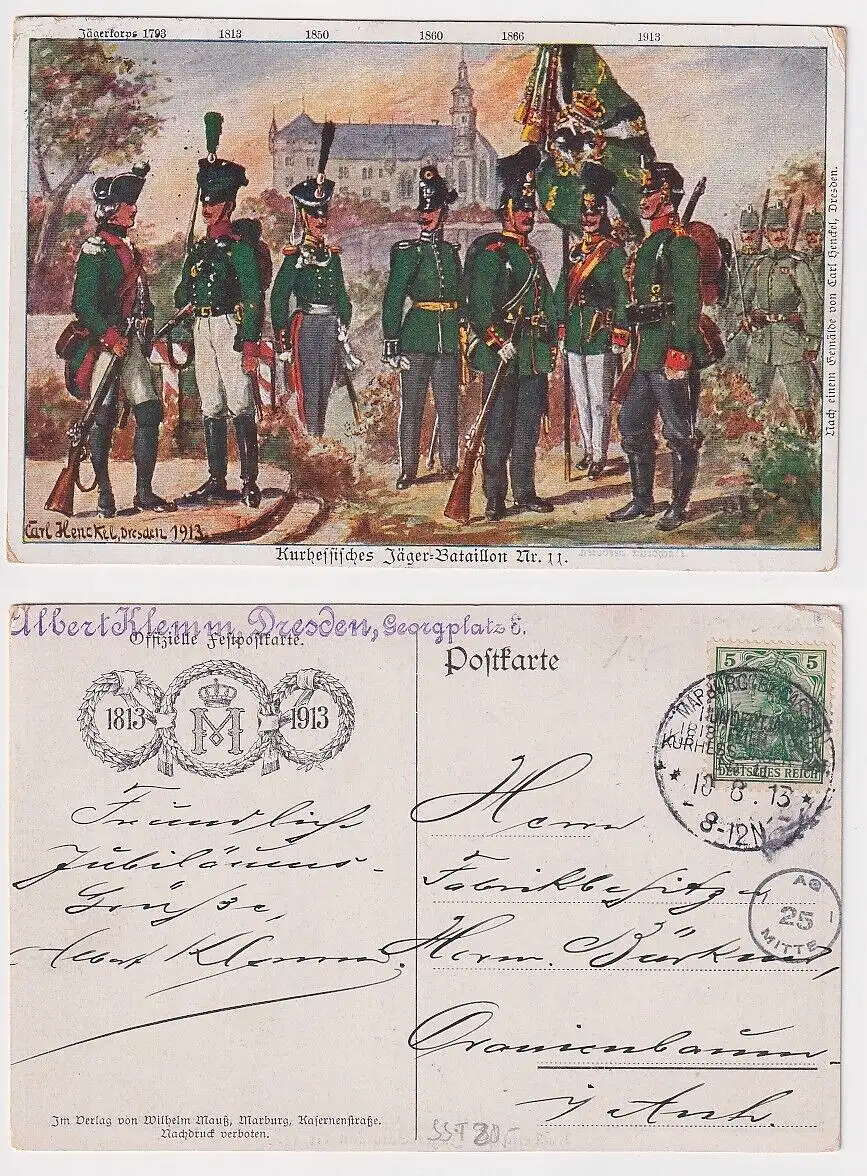 Jägerkorps 1793 1813 1850 1860 1866 1913
Nach einem Gemälde von Carl Henckel, Dresden.
Carl Henckel, Dresden 1913.
Kurhessisches Jäger-Bataillon Nr. 11.
Albert Klemm, Dresden, Georgplatz 6.
Offizielle Festpostkarte.
1813 M 1913
Freundliche
Jubiläums-
Grüsse,
Albert Klemm.
Im Verlag von Wilhelm Mauß, Marburg, Kasernenstraße.
Nachdruck verboten.
Postkarte
5 5
DEUTSCHES REICH
MARBURG
KURHESS
* 10.8.13 *
8-12N
AQ
25
MITTE
Herrn
Fabrikbesitzer
Herm. Bürkner,
Oranienbaum
i/ Anh.
SST 20,-